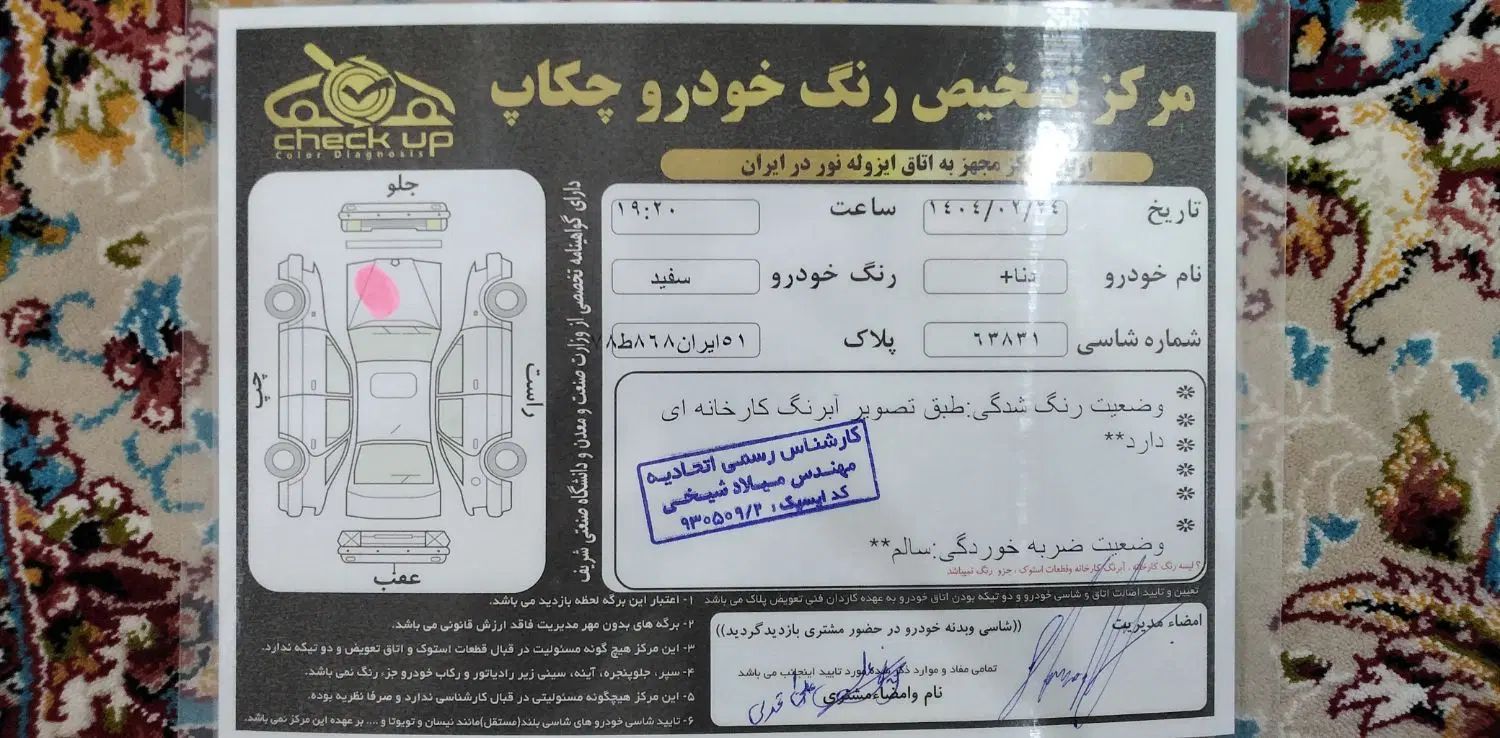 مرکز تشخیص رنگ خودرو چکاپ
check up
Color Diagnosis
اولین مرکز مجهز به اتاق ایزوله نور در ایران
دارای گواهینامه تخصصی از وزارت صنعت و معدن و دانشگاه صنعتی شریف
جلو
راست
چپ
عقب
تاریخ ۱۴۰۴/۰۲/۲۴ ساعت ۱۹:۲۰
نام خودرو دنا+ رنگ خودرو سفید
شماره شاسی ۶۳۸۳۱ پلاک ۵۱ایران۸۶۸ط۷۸
وضعیت رنگ شدگی:طبق تصویر آبرنگ کارخانه ای
دارد**
کارشناس رسمی اتحادیه
مهندس میلاد شیخی
کد ایسیک: ۹۳۰۵۰۹/۲
وضعیت ضربه خوردگی:سالم**
؟ لیسه رنگ کارخانه ، آبرنگ کارخانه وقطعات استوک ، جزو رنگ نمیباشد
تعیین و تایید اصالت اتاق و شاسی خودرو و دو تیکه بودن اتاق خودرو به عهده کاردان فنی تعویض پلاک می باشد
۱- اعتبار این برگه لحظه بازدید می باشد.
۲- برگه های بدون مهر مدیریت فاقد ارزش قانونی می باشد.
۳- این مرکز هیچ گونه مسئولیت در قبال قطعات استوک و اتاق تعویض و دو تیکه ندارد.
۴- سپر، جلوپنجره، آینه، سینی زیر رادیاتور و رکاب خودرو جزء رنگ نمی باشد.
۵- این مرکز هیچگونه مسئولیتی در قبال کارشناسی ندارد و صرفا نظریه بوده.
۶- تایید شاسی خودرو های شاسی بلند(مستقل)مانند نیسان و تویوتا و .... بر عهده این مرکز نمی باشد.
امضاء مدیریت
((شاسی وبدنه خودرو در حضور مشتری بازدیدگردید))
تمامی مفاد و موارد ذکر شده مورد تایید اینجانب می باشد
نام وامضاءمشتری